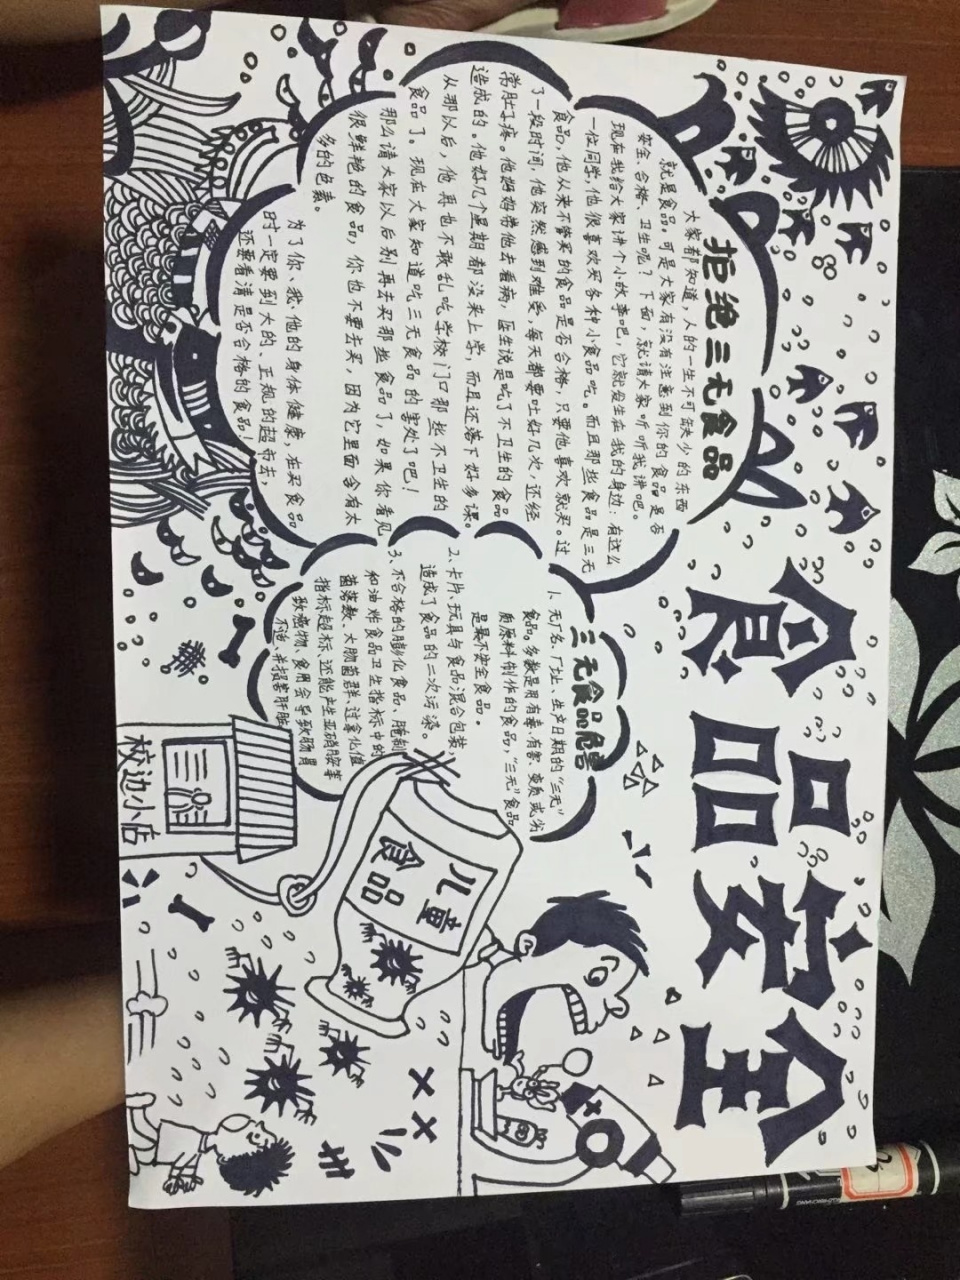 食品安全
拒绝三无食品
大家都知道,人的一生不可缺少的东西
就是食品。可是大家有没有注意到你的食品是否
安全、合格、卫生呢?下面,就请大家听听我讲吧。
现在我给大家讲个小故事吧,它就发生在我的身边:有这么
一位同学,他很喜欢买各种小食品吃。而且那些食品是三无
食品,他从来不管买的食品是否合格,只要他喜欢就买。过
了一段时间,他突然感到难受,每天都要吐好几次,还经
常肚子疼。他妈妈带他去看病,医生说是吃了不卫生的食品
造成的。他好几个星期都没来上学,而且还落下好多课。
从那以后,他再也不敢乱吃学校门口那些不卫生的
食品了。现在大家知道吃三无食品的害处了吧!
那么请大家以后别再去买那些食品了,如果你看见
很鲜艳的食品,你也不要去买,因为它里面含有太
多的色素。
为了你、我、他的身体健康,在买食品
时一定要到大的、正规的超市去,
还要看清是否合格的食品!
三无食品危害
1、无厂名、厂址、生产日期的“三无”
食品。多数是用有毒、有害、变质或劣
质原料制作的食品,“三无”食品
是最不安全食品。
2、卡片、玩具与食品混合包装,
造成了食品的二次污染。
3、不合格的膨化食品、腌制
和油炸食品卫生指标中的
菌落数、大肠菌群、过氧化值
指标超标,还能产生亚硝胺等
致癌物、食用会导致肠胃
不适、并损害肝脏
儿童
食品
校边小店